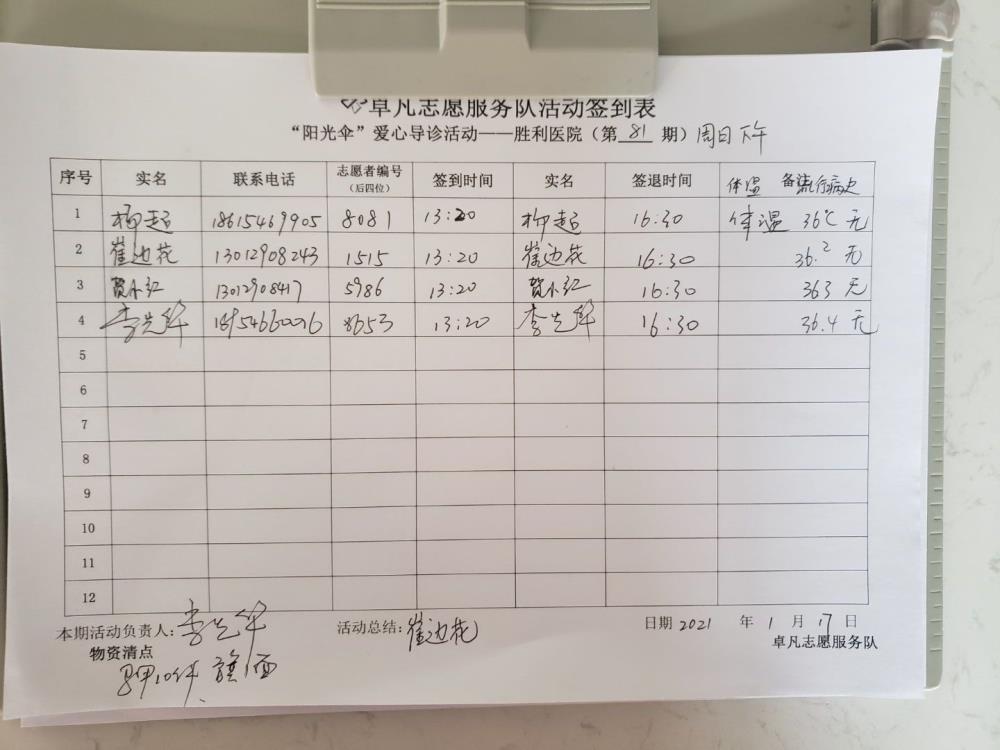 卓凡志愿服务队活动签到表
“阳光伞”爱心导诊活动——胜利医院（第 81 期）周日下午
序号 实名 联系电话 志愿者编号（后四位） 签到时间 实名 签退时间 体温 备注 流行病史
1 柳超 18615469905 8081 13:20 柳超 16:30 体温 36℃ 无
2 崔边花 13012908243 1515 13:20 崔边花 16:30 36.2 无
3 贺小红 13012908417 5986 13:20 贺小红 16:30 363 无
4 李先华 18954660076 8653 13:20 李先华 16:30 36.4 无
5
6
7
8
9
10
11
12
本期活动负责人：李先华 活动总结：崔边花 日期 2021 年 1 月 17 日
物资清点 卓凡志愿服务队
10件 旗 面